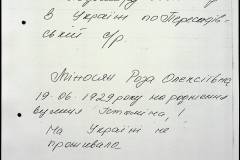 в Україні по Перетрів-
ській с/р
Роза Олексіївна
19.06.1929 року народження
вулиця
На Україні не
проживала